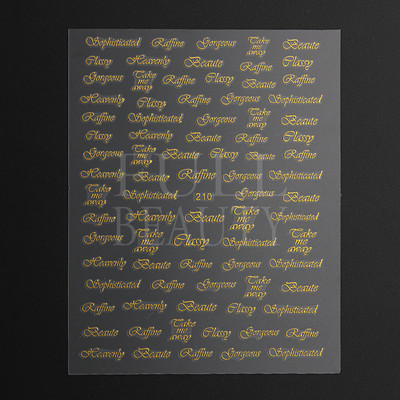 Sophisticated Raffine Gorgeous Take me away Beaute
Classy Heavenly Beaute Raffine Classy
Gorgeous Take me away Raffine Classy Beaute
Heavenly Classy Raffine Gorgeous Sophisticated
Raffine Sophisticated Gorgeous Heavenly
Classy Heavenly Raffine Beaute Classy
Gorgeous Take me away Beaute Classy Beaute Gorgeous
Heavenly Beaute Raffine Gorgeous Heavenly
Take me away Sophisticated 210 Gorgeous Beaute
Raffine Heavenly Beaute Take me away Raffine
Gorgeous Take me away Classy Sophisticated Take me away
Heavenly Beaute Raffine Gorgeous Heavenly
Sophisticated Raffine Gorgeous Take me away Beaute
Raffine Heavenly Beaute Classy Sophisticated
Beaute Raffine Take me away Classy Gorgeous Raffine
Heavenly Beaute Raffine Gorgeous Sophisticated
BEAUTY